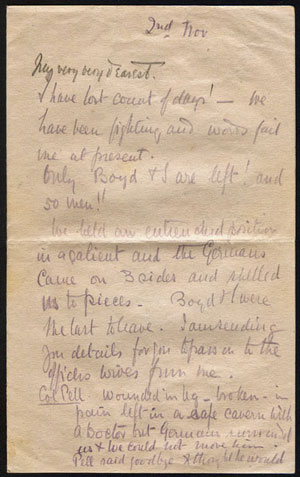 2nd Nov.
My very very dearest.
I have lost count of days! — We
have been fighting and words fail
me at present.
Only Boyd & I are left! and
50 men!!
We held an entrenched position
in a salient and the Germans
came on 3 sides and shelled
us to pieces — Boyd & I were
the last to leave. I am sending
you details for you to pass on to the
officers wives from me.
Col. Pell wounded in leg - broken - in
pain left in a safe cavern with
a Doctor but Germans surround
us & we could not move him.
Pell said goodbye & thought he would